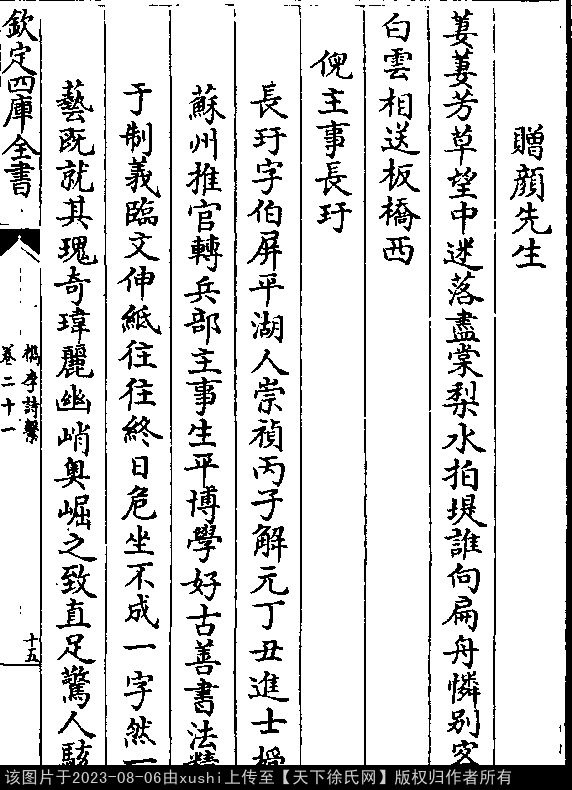 贈顔先生
萋萋芳草望中迷落盡棠梨水拍堤誰向扁舟憐别客
白雲相送板橋西
倪主事長玗
長玗字伯屏平湖人崇禎丙子解元丁丑進士授
蘇州推官轉兵部主事生平博學好古善書法精
于制義臨文伸紙往往終日危坐不成一字然一
藝既就其瑰奇瑋麗幽峭奥崛之致直足驚人駭
欽定四庫全書
檇李詩繫
卷二十一
十五
该图片于2023-08-06由xushi上传至【天下徐氏网】版权归作者所有